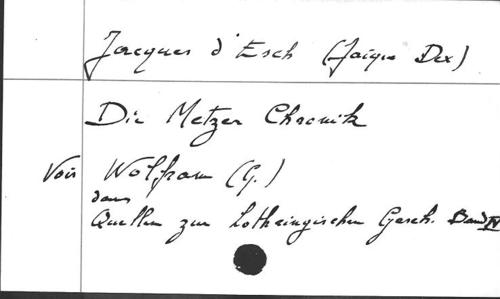 Jacques d'Esch (Jaique Dex)
Die Metzer Chronik
Voir Wolfram (G.)
dans
Quellen zur lothringischen Gesch. Band IV